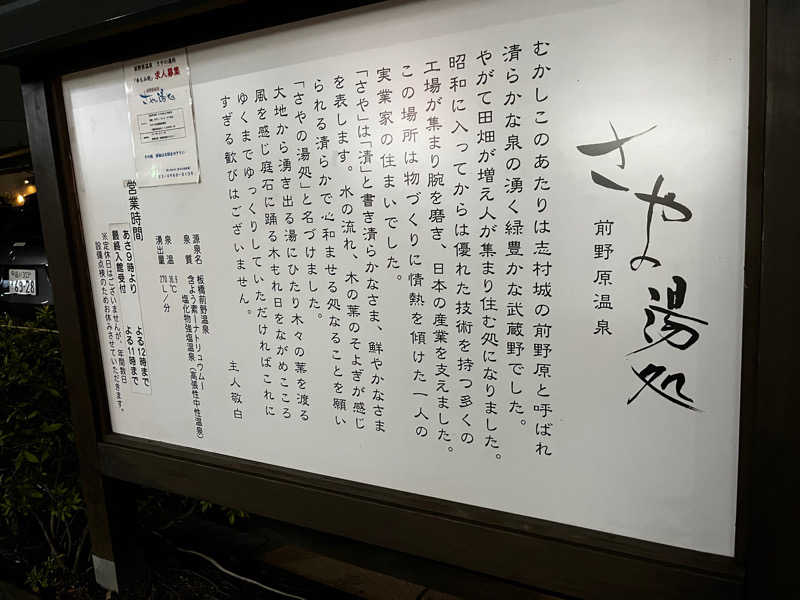 さやの湯処
前野原温泉
むかしこのあたりは志村城の前野原と呼ばれ
清らかな泉の湧く緑豊かな武蔵野でした。
やがて田畑が増え人が集まり住む処になりました。
昭和に入ってからは優れた技術を持つ多くの
工場が集まり腕を磨き、日本の産業を支えました。
この場所は物づくりに情熱を傾けた一人の
実業家の住まいでした。
「さや」は「清」と書き清らかなさま、鮮やかなさま
を表します。水の流れ、木の葉のそよぎが感じ
られる清らかで心和ませる処なることを願い
「さやの湯処」と名づけました。
大地から湧き出る湯にひたり木々の葉を渡る
風を感じ庭石に踊る木もれ日をながめこころ
ゆくまでゆっくりしていただければこれに
すぎる歓びはございません。
主人敬白
源泉名 板橋前野温泉
泉質 含よう素ーナトリュウムー
塩化物強塩温泉(高張性中性温泉)
泉温
湧出量 270L/分
営業時間
あさ9時より よる12時まで
最終入館受付 よる11時まで
※定休日はございませんが、年間数日
設備点検のためお休みさせていただきます。
求人募集
さやの湯処
69-28